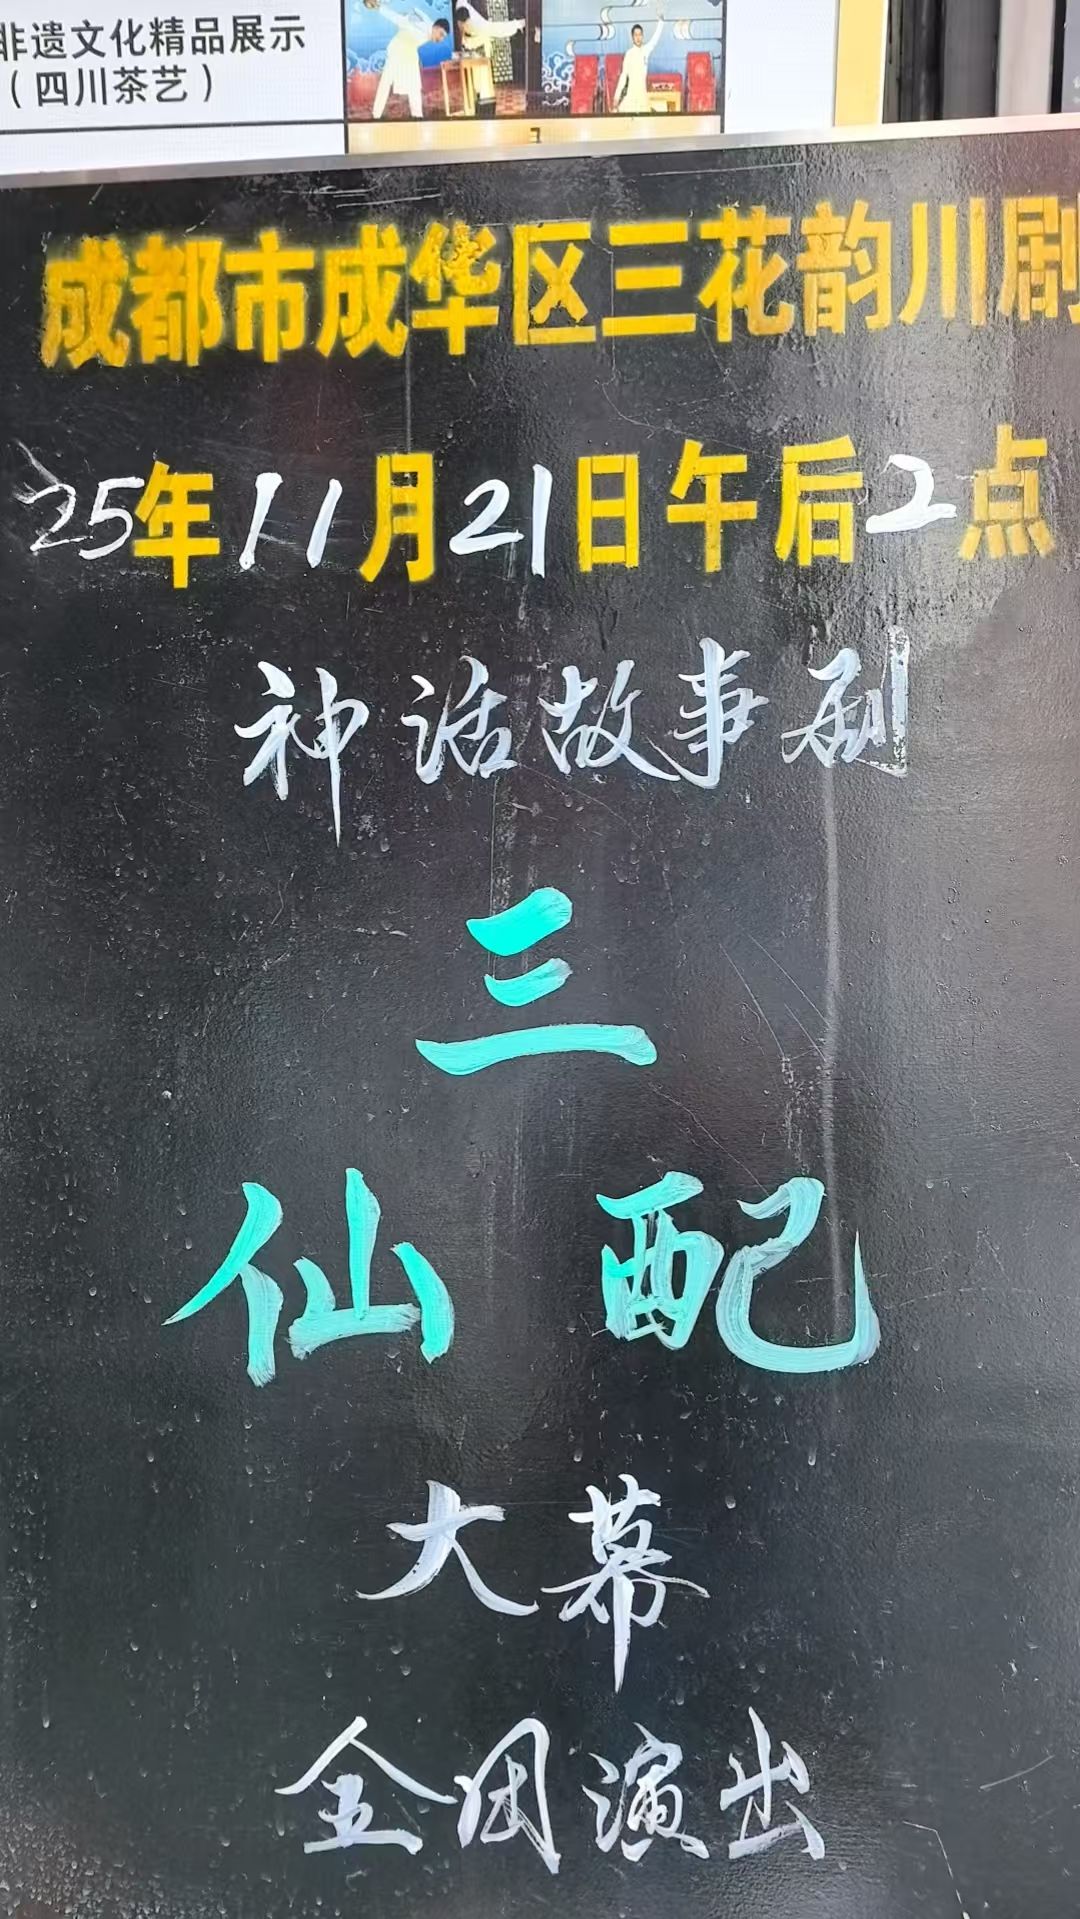 非遗文化精品展示
（四川茶艺）
成都市成华区三花韵川剧
25年11月21日午后2点
神话故事剧
三
仙配
大幕
全团演出